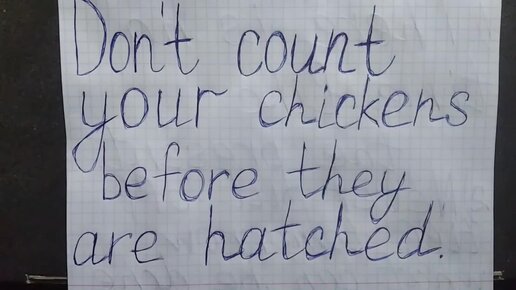 Don't count
your chickens
before they
are hatched.